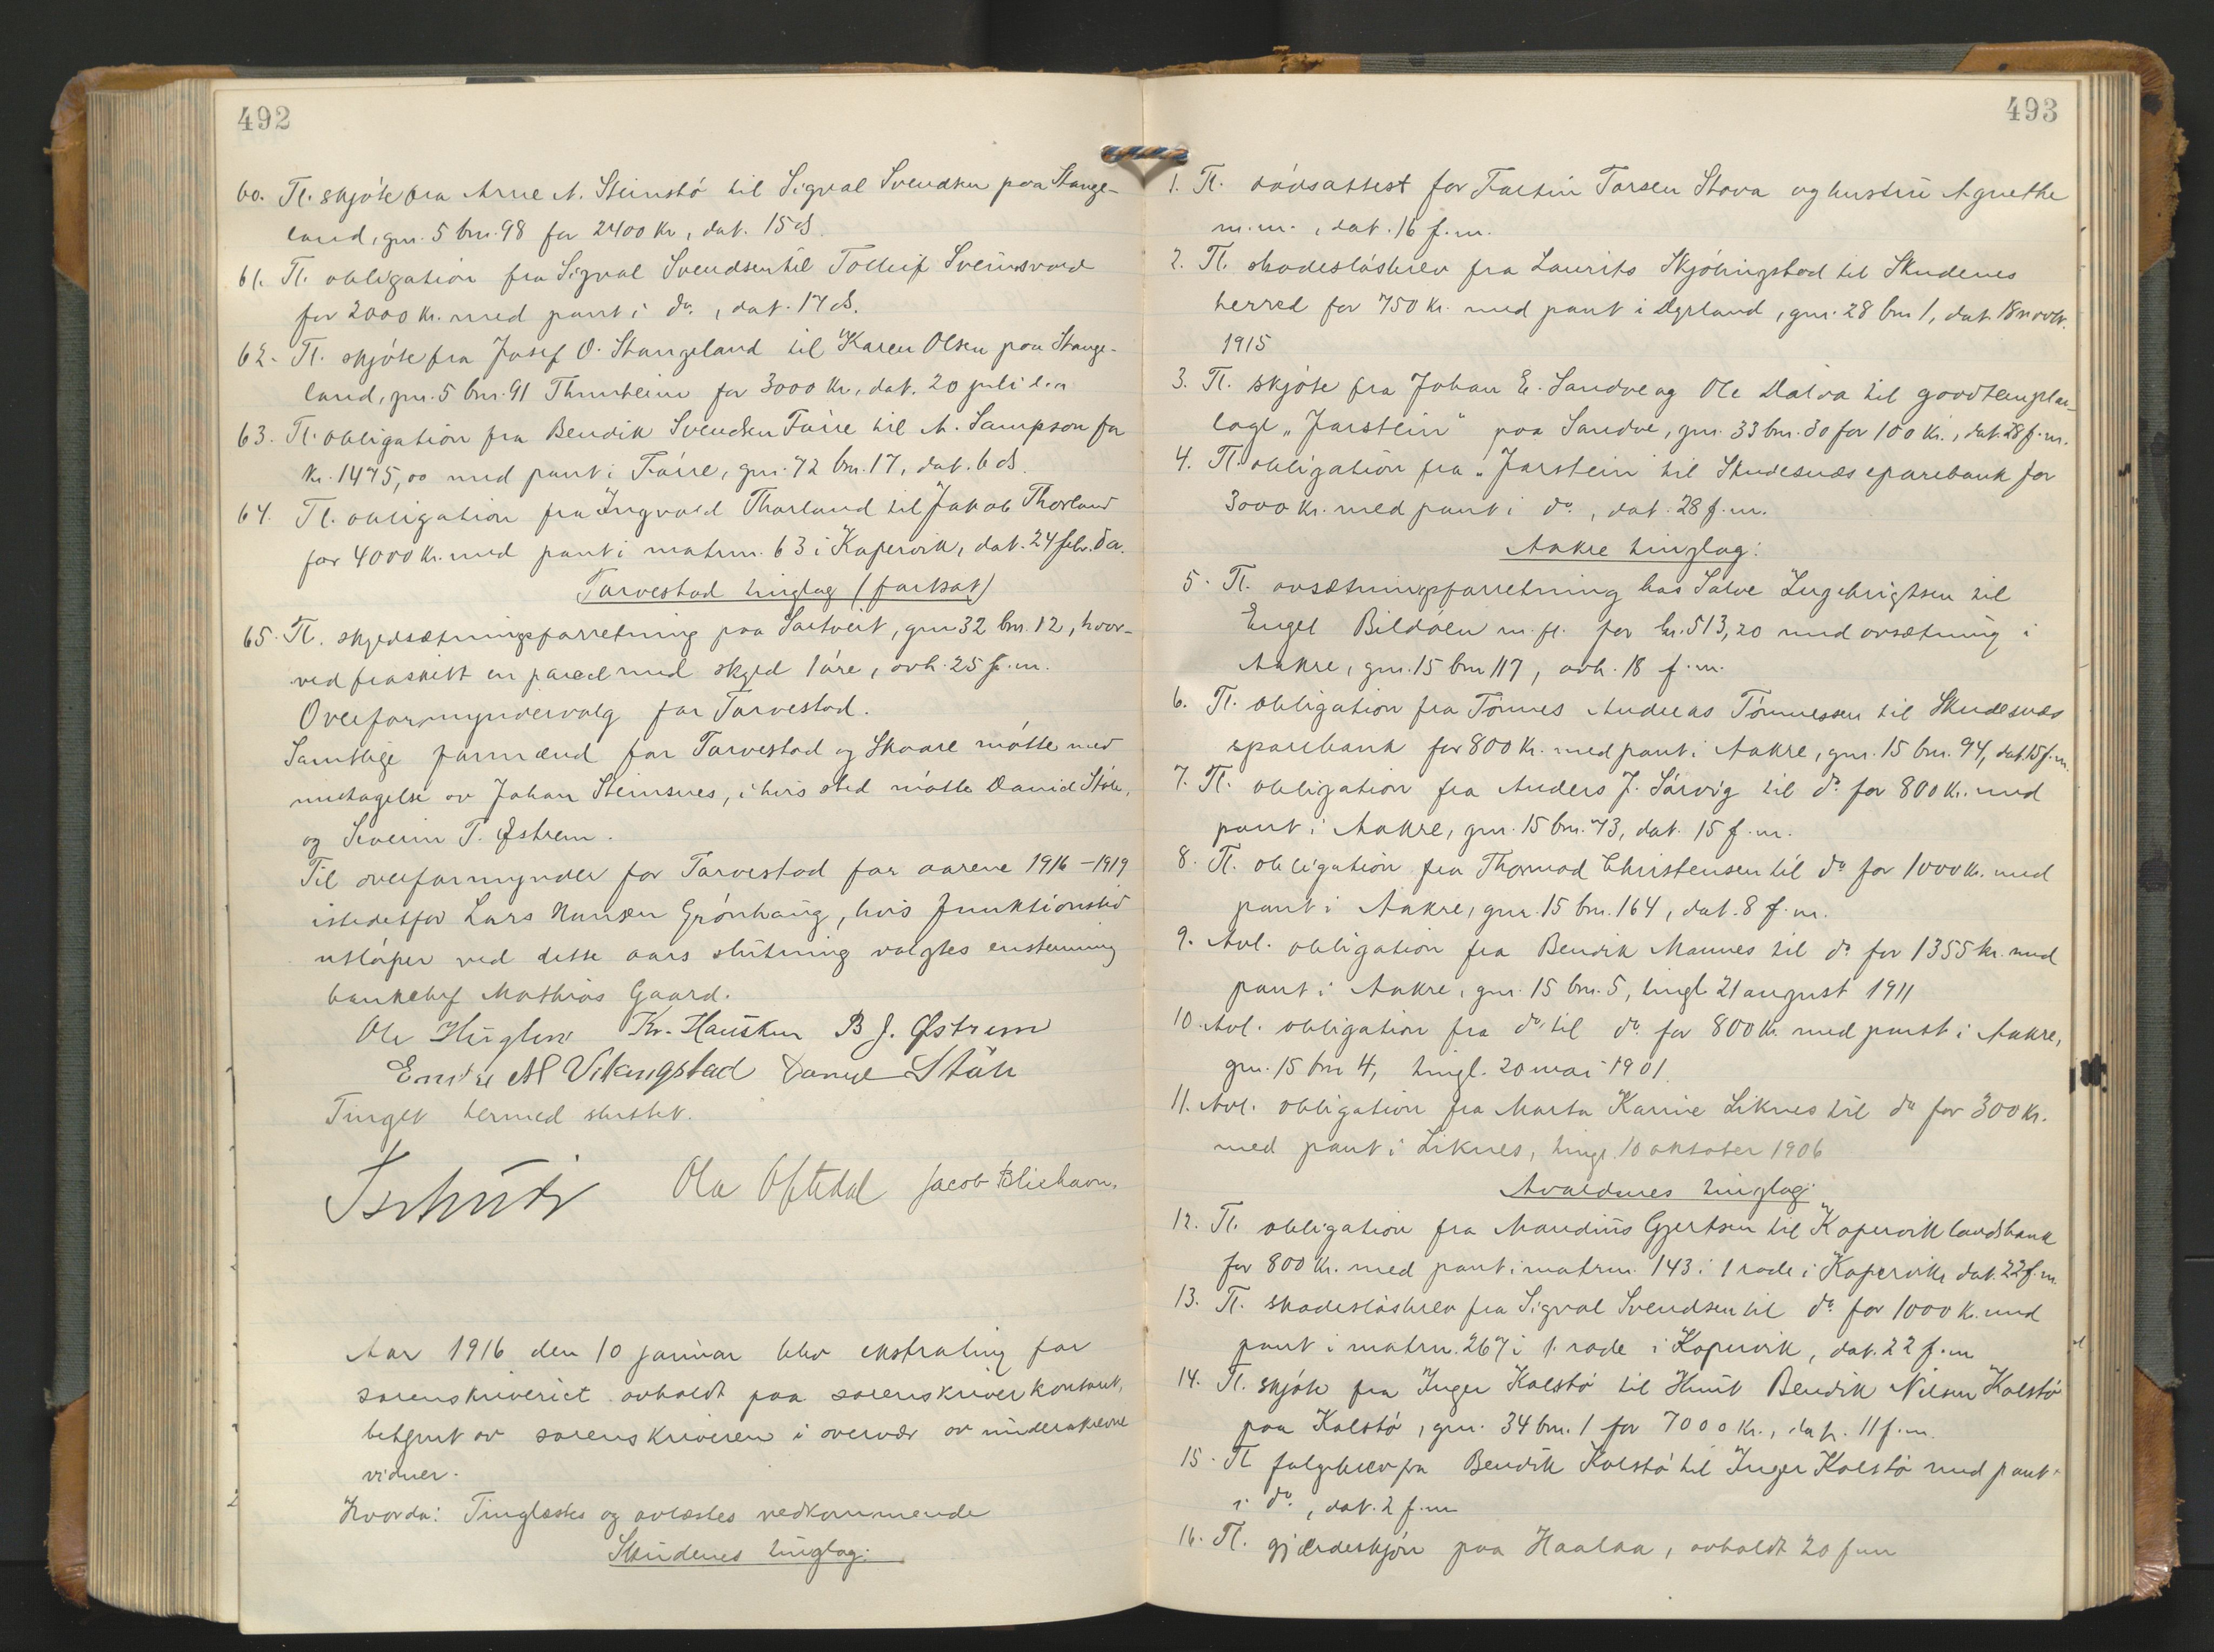 492
60. Tl. skjøte fra Arne N. Steinstø til Sigval Svendsen paa Stange-
land, gnr. 5 bnr. 98 for 2400 kr, dat. 15 ds.
61. Tl. obligation fra Sigval Svendsen til Tolleif Sveinsvold
for 2000 kr. med pant i do., dat. 17 ds.
62. Tl. skjøte fra Josef O. Stangeland til Karen Olsen paa Stange-
land, gnr. 5 bnr. 91 for 3000 kr., dat. 20 juli
63. Tl. obligation fra Bendik Svendsen Føire til A. Sampson for
kr. 1475,00 med pant i Føire, gnr. 72 bnr. 17, dat. 6 ds.
64. Tl. obligation fra Ingvald Thorland til Jakob Thorland
for 4000 kr. med pant i matrnr. 63 i Kopervik, dat. 24 febr. d.a.
Torvestad tinglag (fortsat)
65. Tl. skyldsætningsforretning paa Sørtveit, gnr 32 bnr. 12, hvor-
ved fraskilt en parcel med skyld 1 øre, avh. 25 f.m.
Overformyndervalg for Torvestad.
Samtlige formænd for Torvestad og Skaare møtte med
undtagelse av Johan Steinsnes, i hvis sted møtte David Støle,
og Severin T. Østrem.
Til overformynder for Torvestad for aarene 1916-1919
istedetfor Lars Hansen Grønhaug, hvis funktionstid
utløper ved dette aars slutning valgtes enstemmig
bankchef Mathias Gaard.
Ole Huglen Kr. Hausken B J. Østrem
Endre M Vikingstad Daniel Støle
Tinget hermed sluttet.
Tschudi Ola Oftedal Jacob Bliehavn.
Aar 1916 den 10 januar blev ekstrating for
sorenskriveriet avholdt paa sorenskriverkontoret,
betjent av sorenskriveren i overvær av underskrevne
vidner.
Hvorda: Tinglæstes og avlæstes vedkommende
Skudenes tinglag:
493
1. Tl. dødsattest for Torsen Stava og hustru Agnethe
m.m., dat. 16 f.m.
2. Tl. skadesløsbrev fra Laurits Skjølingstad til Skudenes
herred for 750 kr. med pant i Dyrland, gnr. 28 bnr 1, dat. 18 novbr.
1915
3. Tl. skjøte fra Johan E. Sandve og Ole Dalva til goodtemplar-
loge "Jarstein" paa Sandve, gnr. 33 bnr. 30 for 100 kr., dat. 28 f.m.
4. Tl. obligation fra "Jarstein" til Skudesnæs sparebank for
3000 kr. med pant i do., dat. 28 f.m.
Aakre tinglag:
5. Tl. avsætningsforretning hos Salve Ingebrigtsen til
Engel Bildøen m. fl. for kr. 513,20 med avsætning i
Aakre, gnr. 15 bnr 117, avh. 18 f.m.
6. Tl. obligation fra Tønnes Andreas Tønnessen til Skudesnæs
sparebank for 800 kr. med pant i Aakre, gnr. 15 bnr. 94, dat. 15 f.m.
7. Tl. obligation fra Anders J. Sørvig til do. for 800 kr. med
pant i Aakre, gnr. 15 bnr. 73, dat. 15 f.m.
8. Tl. obligation fra Thormod Christensen til do for 1000 kr. med
pant i Aakre, gnr. 15 bnr. 164, dat. 8 f.m.
9. Avl. obligation fra Bendik Mannes til do for 1355 kr. med
pant i Aakre, gnr. 15 bnr. 5, tingl. 21 august 1911
10. Avl. obligation fra do. til do. for 800 kr. med pant i Aakre,
gnr. 15 bnr 4, tingl. 20 mai 1901.
11. Avl. obligation fra Marta Karine Liknes til do for 300 kr.
med pant i Liknes, tingl. 10 oktober 1906
Avaldsnes tinglag:
12. Tl. obligation fra Maudius Gjertsen til Kopervik landsbank
for 800 kr. med pant i matrnr. 143 i 1 rode i Kopervik, dat. 22 f.m.
13. Tl. skadesløsbrev fra Sigval Svendsen til do. for 1000 kr. med
pant i matrnr. 267 i 1. rode i Kopervik, dat. 22 f.m
14. Tl. skjøte fra Inger Kolstø til Knut Bendik Nilsen Kolstø
paa Kolstø, gnr. 34 bnr. 1 for 7000 kr., dat. 11 f.m.
15. Tl. følgebrev fra Bendik Kolstø til Inger Kolstø med pant
i do., dat. 2 f.m
16. Tl. gjærdeskjøn paa Haalaa, avholdt 20 f.m